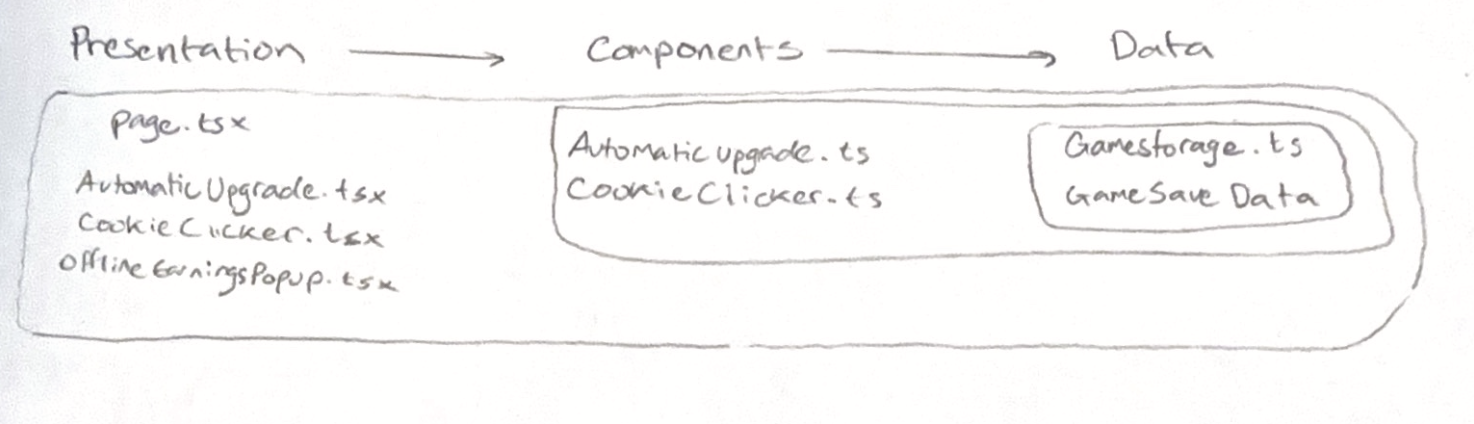 Presentation
Components
Data
page.tsx
AutomaticUpgrade.tsx
CookieClicker.tsx
OfflineEarningsPopup.tsx
Automatic upgrade.ts
CookieClicker.ts
Gamestorage.ts
GameSave Data